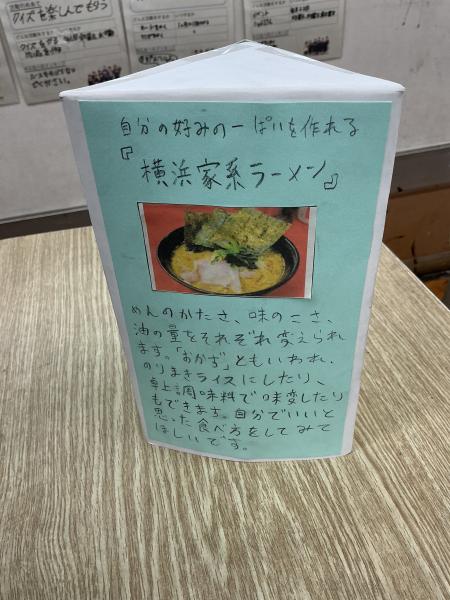 クイズを楽しんでもらう
自分の好みの一ぱいを作れる
『横浜家系ラーメン』
めんのかたさ、味のこさ、
油の量をそれぞれ変えられ
ます。「おかず」ともいわれ、
のりまきライスにしたり、
卓上調味料で味変したり
もできます。自分でいいと
思った食べ方をしてみて
ほしいです。